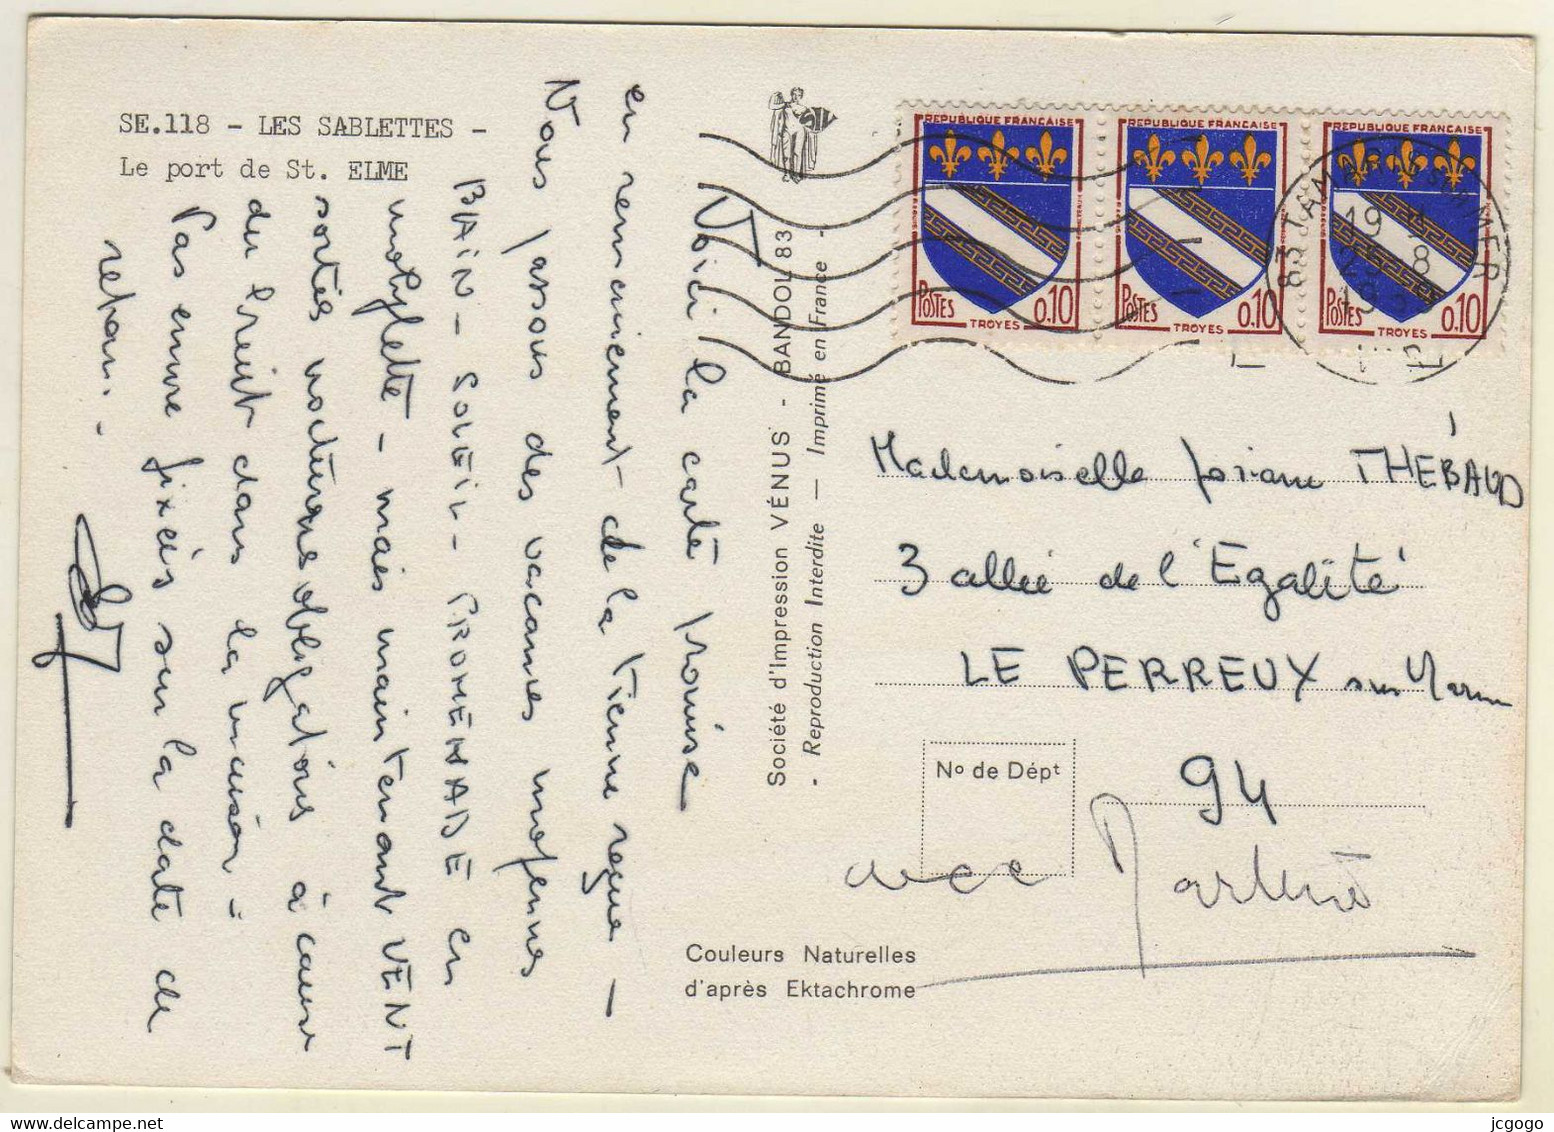 SE.118 - LES SABLETTES -
Le port de St. ELME
Voici la carte promise
en remerciement de la tienne reçue -
Nous passons des vacances moyennes
BAIN - SOLEIL - PROMENADE en
mobylette - mais maintenant VENT
sorties nocturnes obligatoires à cause
du bruit dans la maison -
Pas encore fixés sur la date de
retour. -
Société d'Impression VÉNUS - BANDOL 83
- Reproduction Interdite — Imprimé en France -
REPUBLIQUE FRANÇAISE
POSTES
0.10
TROYES
REPUBLIQUE FRANÇAISE
POSTES
0.10
TROYES
REPUBLIQUE FRANÇAISE
POSTES
0.10
TROYES
83 TAMARIS S/ MER
Mademoiselle Josiane THÉBAUD
3 allée de l'Egalité
LE PERREUX sur Marne
No de Dépt
94
avec
Couleurs Naturelles
d'après Ektachrome
jcgogo